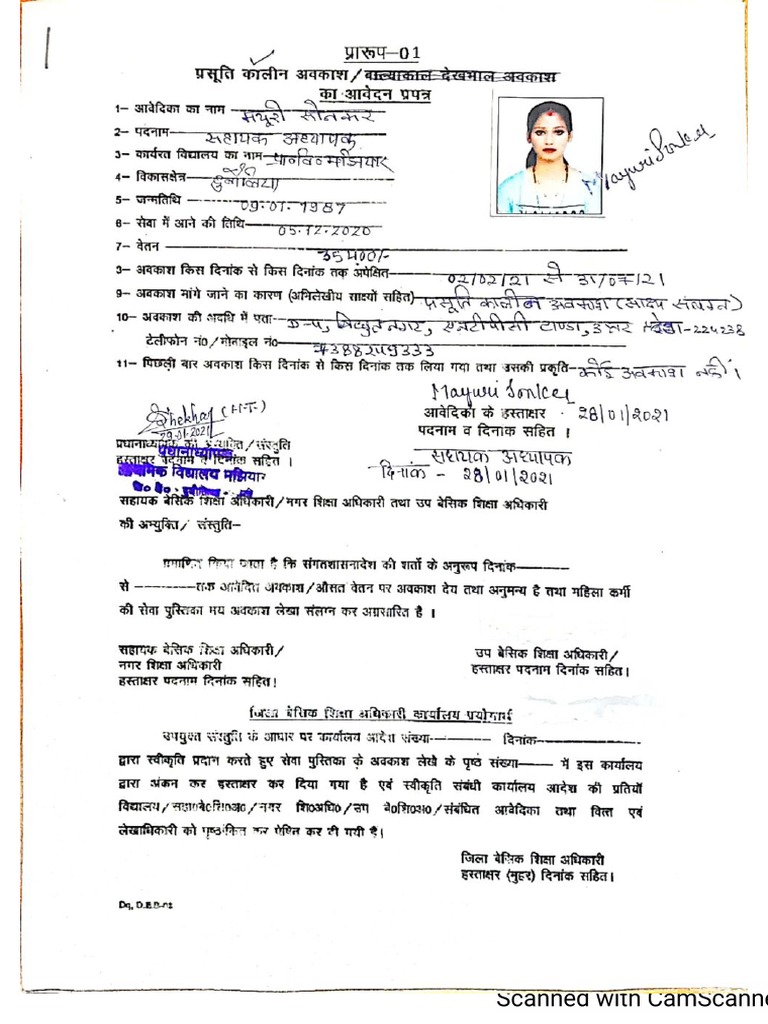 प्रारूप-01
प्रसूति कालीन अवकाश/बाल्याकाल देखभाल अवकाश
का आवेदन प्रपत्र
1- आवेदिका का नाम मयूरी सोनकर
2- पदनाम सहायक अध्यापक
3- कार्यरत विद्यालय का नाम प्रा०वि० मझियार
4- विकासक्षेत्र
5- जन्मतिथि 09.01.1987
6- सेवा में आने की तिथि 05.12.2020
7- वेतन 35400/-
8- अवकाश किस दिनांक से किस दिनांक तक अपेक्षित 02/02/21 से 31/07/21
9- अवकाश मांगे जाने का कारण (अभिलेखीय साक्ष्यों सहित) प्रसूति कालीन अवकाश (साक्ष्य संलग्न)
10- अवकाश की अवधि में पता विद्युत नगर, एनटीपीसी टाण्डा, उत्तर प्रदेश-224238
टेलीफोन नं०/मोबाइल नं०
11- पिछली बार अवकाश किस दिनांक से किस दिनांक तक लिया गया तथा उसकी प्रकृति- कोई अवकाश नहीं।
Mayuri Sonker
Mayuri Sonker
Shekhar (H.T.)
29.01.2021
आवेदिका के हस्ताक्षर 28/01/2021
पदनाम व दिनांक सहित।
सहायक अध्यापक
दिनांक - 28/01/2021
प्रधानाध्यापक की अभ्युक्ति/संस्तुति
हस्ताक्षर पदनाम व दिनांक सहित।
प्रधानाध्यापक
प्राथमिक विद्यालय मझियार
सहायक बेसिक शिक्षा अधिकारी/नगर शिक्षा अधिकारी तथा उप बेसिक शिक्षा अधिकारी
की अभ्युक्ति/ संस्तुति-
प्रमाणित किया जाता है कि संगतशासनादेश की शर्तो के अनुरूप दिनांक
से तक आवेदित अवकाश/औसत वेतन पर अवकाश देय तथा अनुमन्य है तथा महिला कर्मी
की सेवा पुस्तिका मय अवकाश लेखा संलग्न कर अग्रसारित है।
सहायक बेसिक शिक्षा अधिकारी/
नगर शिक्षा अधिकारी
हस्ताक्षर पदनाम दिनांक सहित!
उप बेसिक शिक्षा अधिकारी
हस्ताक्षर पदनाम दिनांक सहित।
जिला बेसिक शिक्षा अधिकारी कार्यालय प्रयोगार्थ
उपयुक्त संस्तुति के आधार पर कार्यालय आदेश संख्या दिनांक
द्वारा स्वीकृति प्रदान करते हुए सेवा पुस्तिका के अवकाश लेखे के पृष्ठ संख्या में इस कार्यालय
द्वारा अंकन कर हस्ताक्षर कर दिया गया है एवं स्वीकृति संबंधी कार्यालय आदेश की प्रतियाँ
विद्यालय/सहा०बे०शि०अ०/नगर शि०अधि०/उप बे०शि०अ०/संबंधित आवेदिका तथा वित्त एवं
लेखाधिकारी को पृष्ठांकित कर प्रेषित कर दी गयी है।
जिला बेसिक शिक्षा अधिकारी
हस्ताक्षर (मुहर) दिनांक सहित।
Scanned with CamScanne